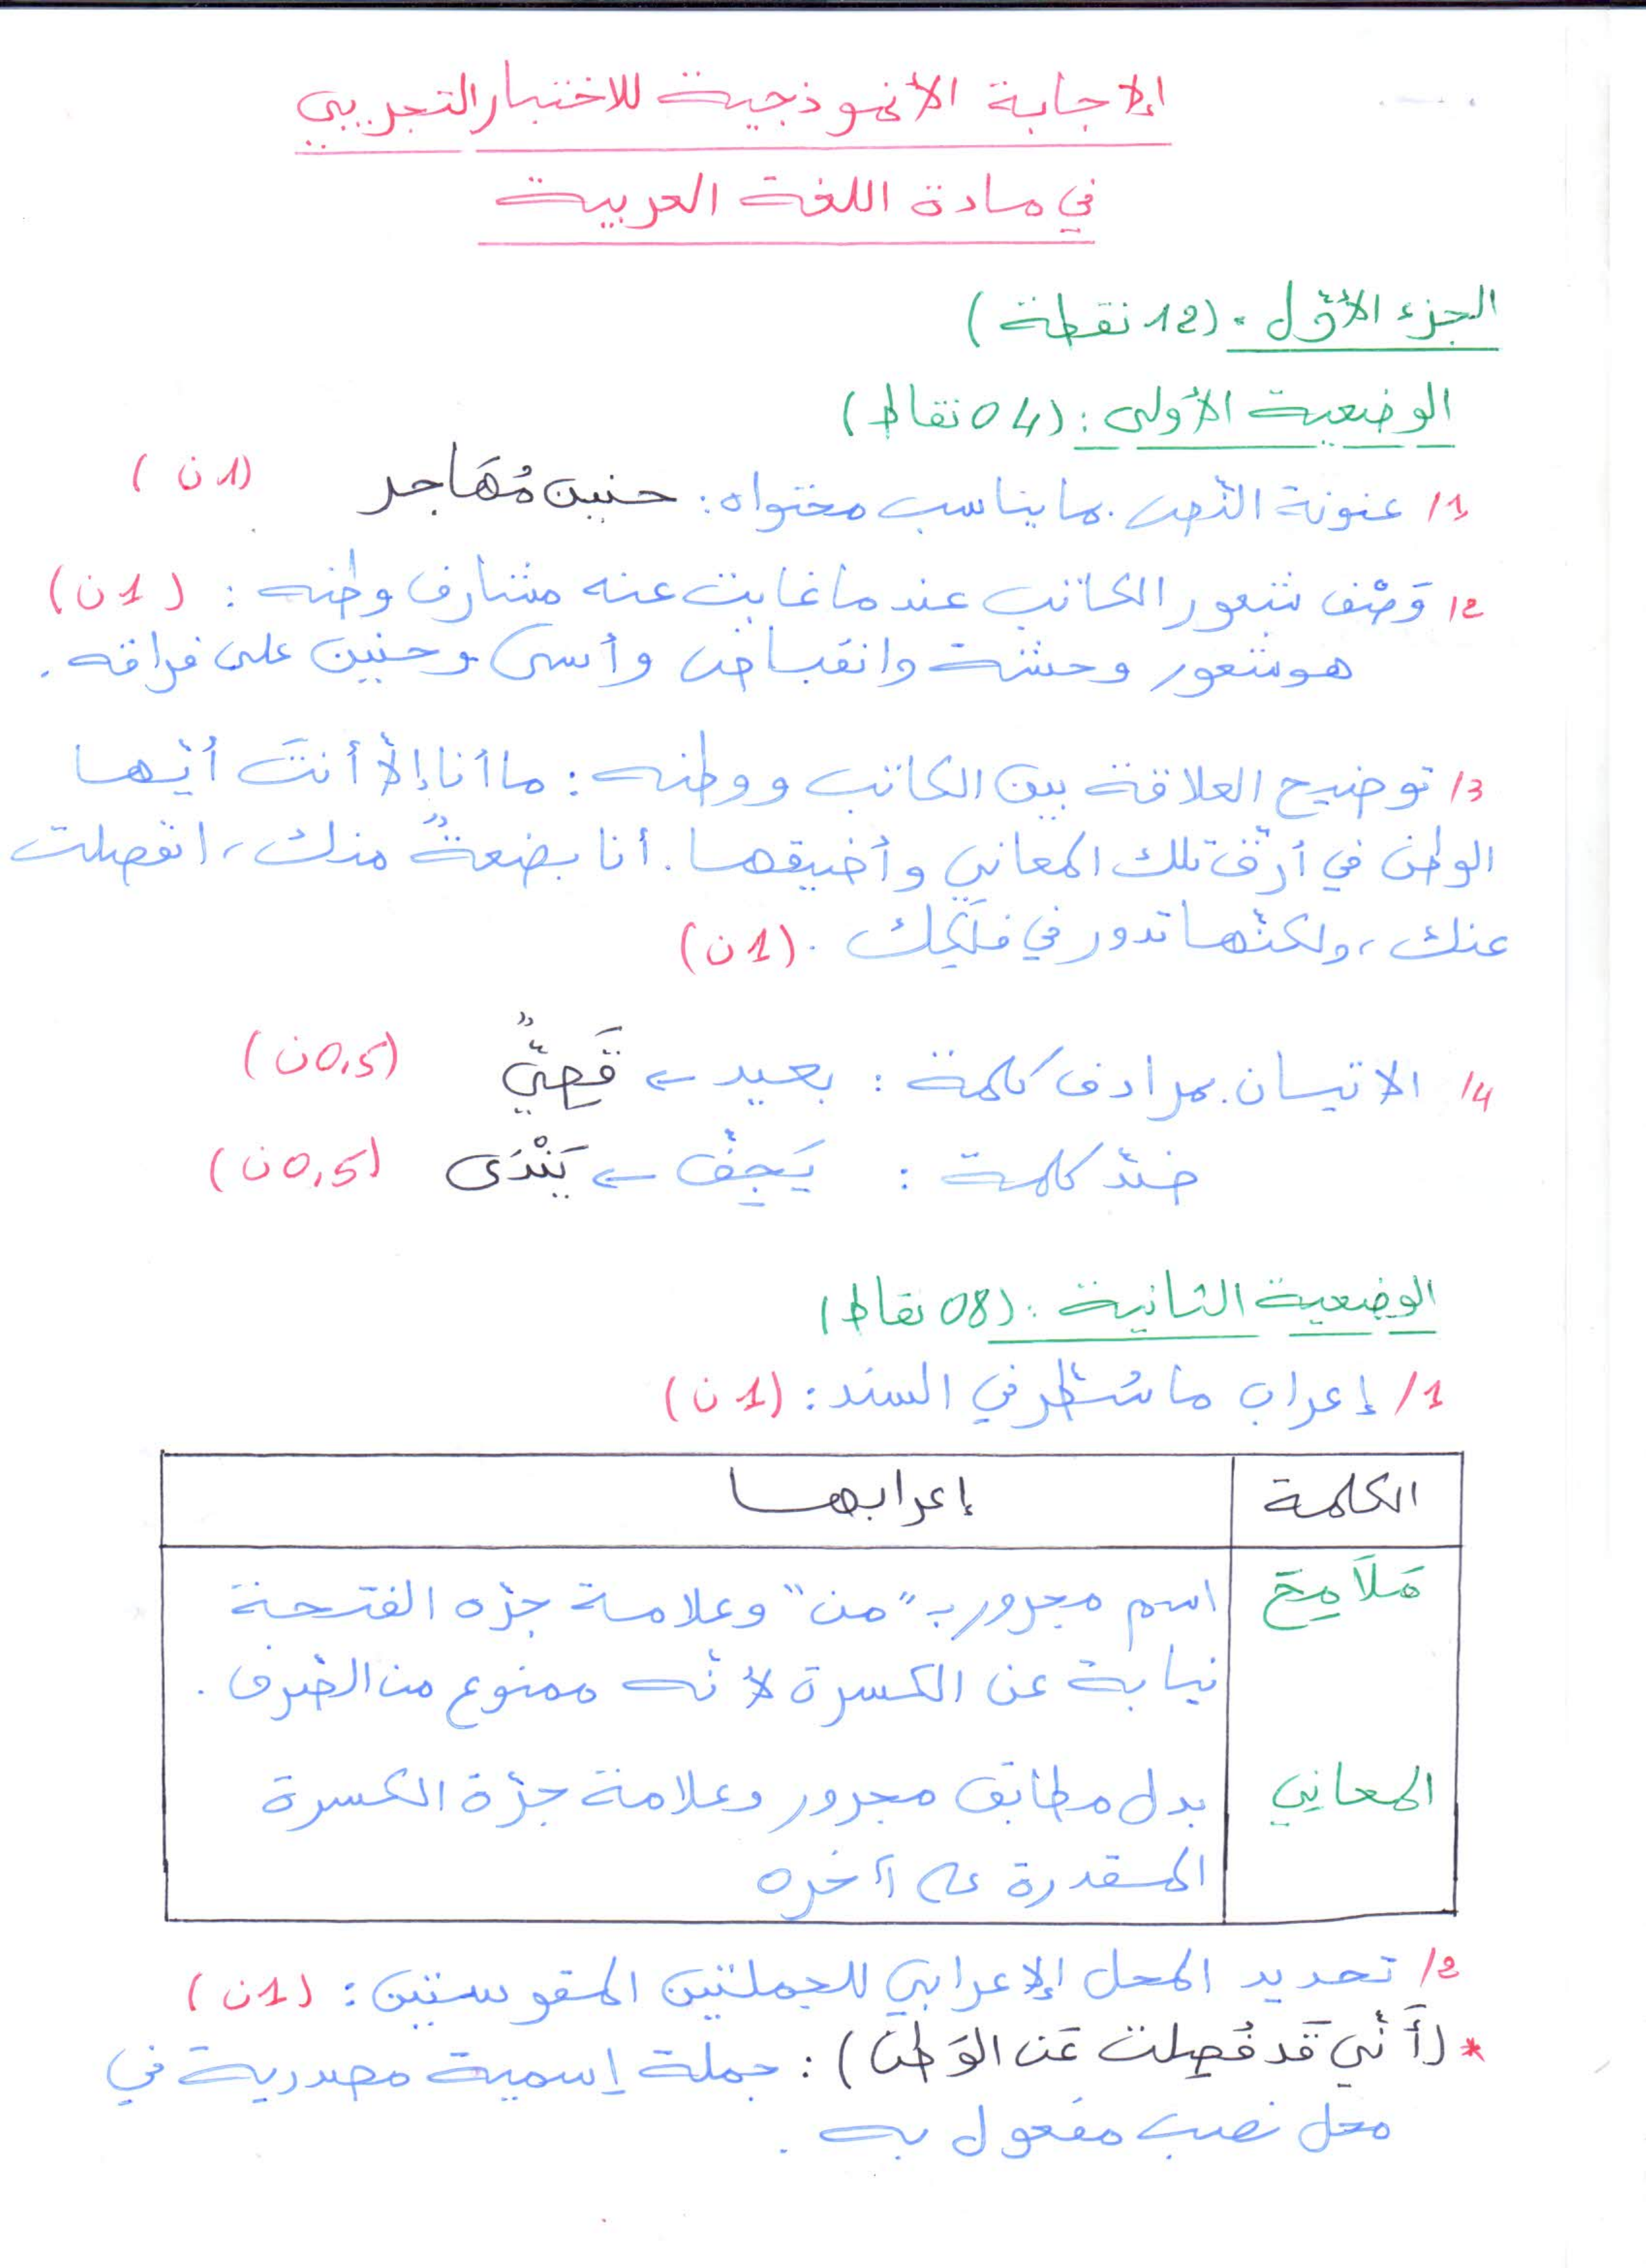 الإجابة الأنموذجية للاختبار التجريبي
في مادة اللغة العربية
الجزء الأوّل: (12 نقطة)
الوضعية الأولى: (04 نقاط)
1/ عنونة النّص بما يناسب محتواه: حنين مُهَاجر (1ن)
2/ وَصْف شعور الكاتب عندما غابت عنه مشارف وطنه: (1ن)
هو شعور وحشة وانقباض وأسى وحنين على فراقه.
3/ توضيح العلاقة بين الكاتب ووطنه: ما أنا إلاّ أنتَ أيّها
الوطن في أرقّ تلك المعاني وأضيقها. أنا بضعةٌ منك، انفصلت
عنك، ولكنّها تدور في فلَكِك. (1ن)
4/ الاتيان بمرادف كلمة: بعيد ← قَصِيٌّ (0,5ن)
ضدّ كلمة: يَجِفّ ← يَنْدَى (0,5ن)
الوضعية الثانية: (08 نقاط)
1/ إعراب ما سُطّر في السند: (1ن)
الكلمة إعرابها
مَلَامِحَ اسم مجرور بـ "من" وعلامة جرّه الفتحة
نيابة عن الكسرة لأنّه ممنوع من الصّرف.
المعاني بدل مطابق مجرور وعلامة جرّة الكسرة
المقدرة على آخره
2/ تحديد المحل الإعرابي للجملتين المقوستين: (1ن)
* (أَنّي قَد فُصِلت عَن الوَطن): جملة إسمية مصدرية في
محل نصب مفعول به.